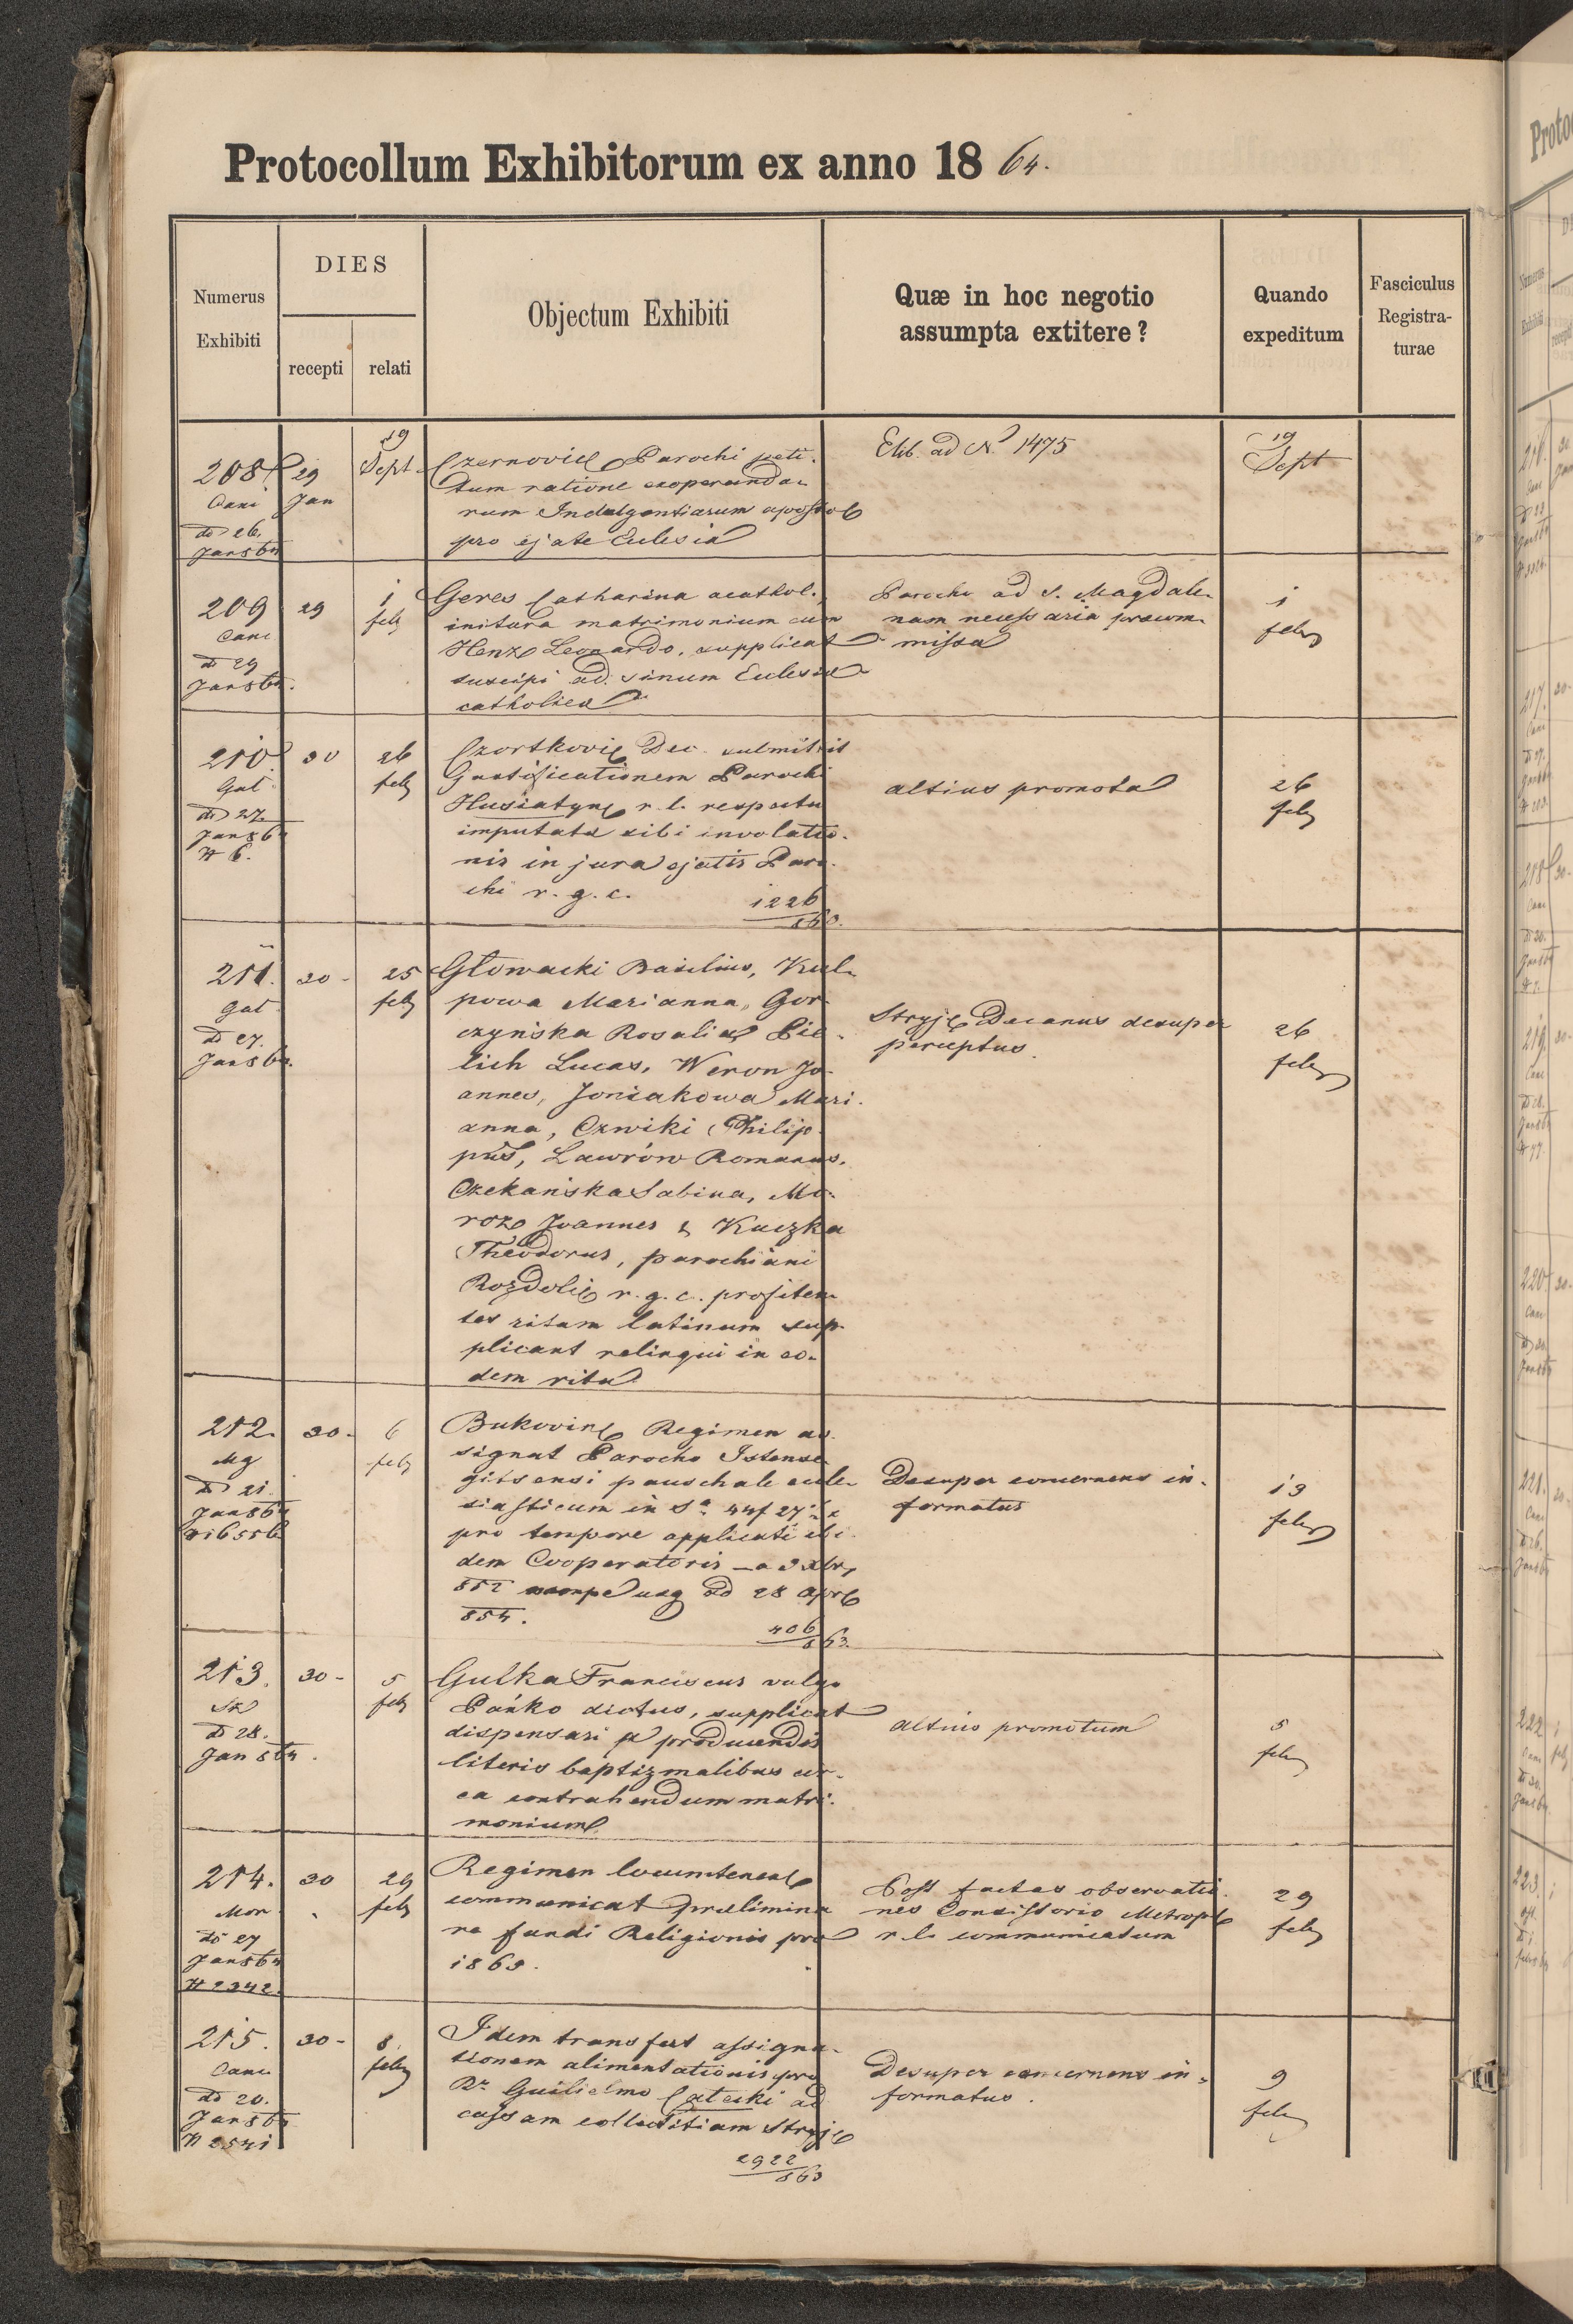 Protocollum Exhibitorum ex anno 1864.
Numerus
Exhibiti
DIES
recepti
relati
Objectum Exhibiti
Quæ in hoc negotio
assumpta extitere?
Quando
expeditum
Fasciculus
Registra-
turae
208
Cani
dd 26.
Jan 864
29
Jan
19
Sept.
Parochi peti-
tum ratione exoperanda-
rum Indulgentiarum apostol
pro ejate Eclesia
Elib. ad N 1475
19
Sept
209
Canc
dd 29
Jan 864.
29
1
feb
Geres Catharina acathol.,
initura matrimonium cum
Henz Leonardo, supplicat
suscipi ad sinum Eclesiæ
catholicæ
Parocho ad S. Magdale-
nam necessaria præom-
missa
1
feb
210
Gal
dd 27.
Jan 864
N 6.
30
26
feb
Czortkovie Dec. submittit
Justificationem Parochi
Husiatyn r. l. respectu
imputata sibi involatio-
nis in jura ejatis Paro-
chi r. g. c.
1226
863.
altius promota
26
feb
211.
Gal
dd 27.
Jan 864.
30 -
25
feb
Głowacki Basilius, Kul-
powa Marianna, Gor-
czyńska Rosalia, Pie-
lich Lucas, Weron Jo-
annes, Joniakowa Mari-
anna, Czwiki Philip-
pus, Lawrów Romanus,
Czekańska Sabina, Mo-
roz Joannes & Kuczka
Theodorus, parochiani
Rozdolie r. g. c. profiten-
tes ritum latinum sup-
plicant relinqui in eo-
dem ritu
Stryje Decanus desuper
perceptus.
26
feb
212.
Mg
dd 21.
Jan 864
30 -
6
feb
Bukovin Regimen as-
signat Parocho Istense-
gitsensi pauschale ecle-
siasticum in Sa 44f 27
pro tempore applicati ibi-
dem Cooperatoris a 3 xbr,
852 usq ad 28 Apr
854.
406
863.
Desuper concernens in-
formatus
13
feb
213.
dd 28.
Jan 864.
30 -
5
feb
Gulka Franciscus vulgo
Pańko dictus, supplicat
dispensari a producendis
literis baptizmalibus cir-
ca contrahendum matri-
monium
altius promotum
5
feb
214.
Mon
dd 27
Jan 864
N 2342.
30
29
feb
Regimen locumtenent
communicat prælimina-
re fundi Religionis pro
1863.
Post factas observatio-
nes Consistorio Metropl
r. l. communicatum
29
feb
215.
Canc
dd 20.
Jan 864
N 2541
30 -
8.
feb
Idem transfert assigna-
tionem alimentationis pro
Rr Guilielmo ad
cassam collectitiam Stryje
2922
863
Desuper concernens in-
formatus.
9
feb